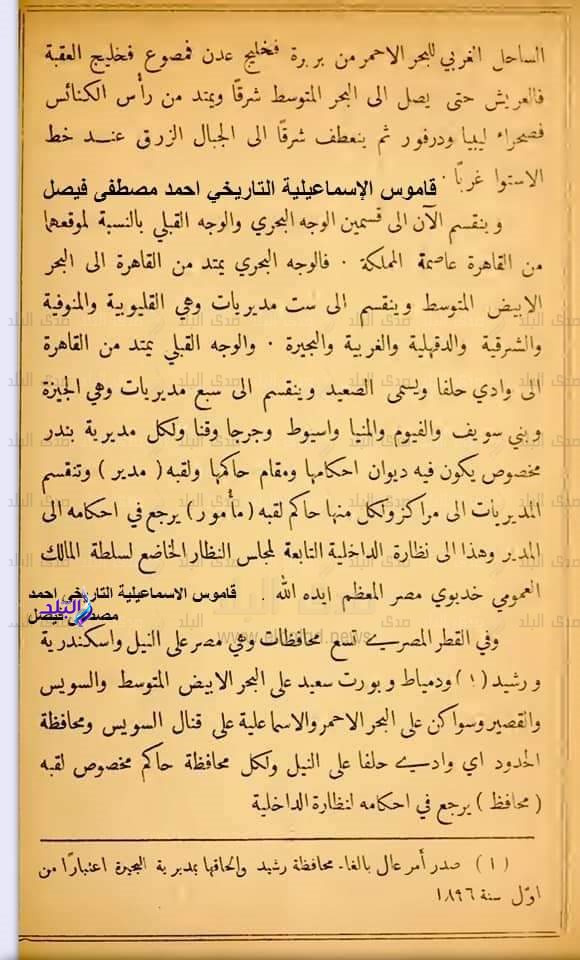 الساحل الغربي للبحر الاحمر من بربرة فخليج عدن فمصوع فخليج العقبة
فالعريش حتى يصل الى البحر المتوسط شرقًا ويمتد من رأس الكنائس
فصحراء ليبيا ودرفور ثم ينعطف شرقًا الى الجبال الزرق عند خط
الاستوا غربًا .
قاموس الإسماعيلية التاريخي احمد مصطفى فيصل
وينقسم الآن الى قسمين الوجه البحري والوجه القبلي بالنسبة لموقعهما
من القاهرة عاصمة المملكة . فالوجه البحري يمتد من القاهرة الى البحر
الابيض المتوسط وينقسم الى ست مديريات وهي القليوبية والمنوفية
والشرقية والدقهلية والغربية والبحيرة . والوجه القبلي يمتد من القاهرة
الى وادي حلفا ويسمى الصعيد وينقسم الى سبع مديريات وهي الجيزة
وبني سويف والفيوم والمنيا واسيوط وجرجا وقنا ولكل مديرية بندر
مخصوص يكون فيه ديوان احكامها ومقام حاكمها ولقبه ( مدير ) وتنقسم
المديريات الى مراكز ولكل منها حاكم لقبه ( مأمور ) يرجع في احكامه الى
المدير وهذا الى نظارة الداخلية التابعة لمجلس النظار الخاضع لسلطة المالك
العمومي خديوي مصر المعظم ايده الله .
قاموس الاسماعيلية التاريخي احمد
مصطفى فيصل
البلد
www.elbalad.news
وفي القطر المصري تسع محافظات وهي مصر على النيل واسكندرية
ورشيد (١) ودمياط وبورت سعيد على البحر الابيض المتوسط والسويس
والقصير وسواكن على البحر الاحمر والاسماعلية على قنال السويس ومحافظة
الحدود اي وادي حلفا على النيل ولكل محافظة حاكم مخصوص لقبه
( محافظ ) يرجع في احكامه لنظارة الداخلية
(١) صدر أمر عال بالغاء محافظة رشيد والحاقها بمديرية البحيرة اعتبارًا من
اوّل سنة ١٨٩٦